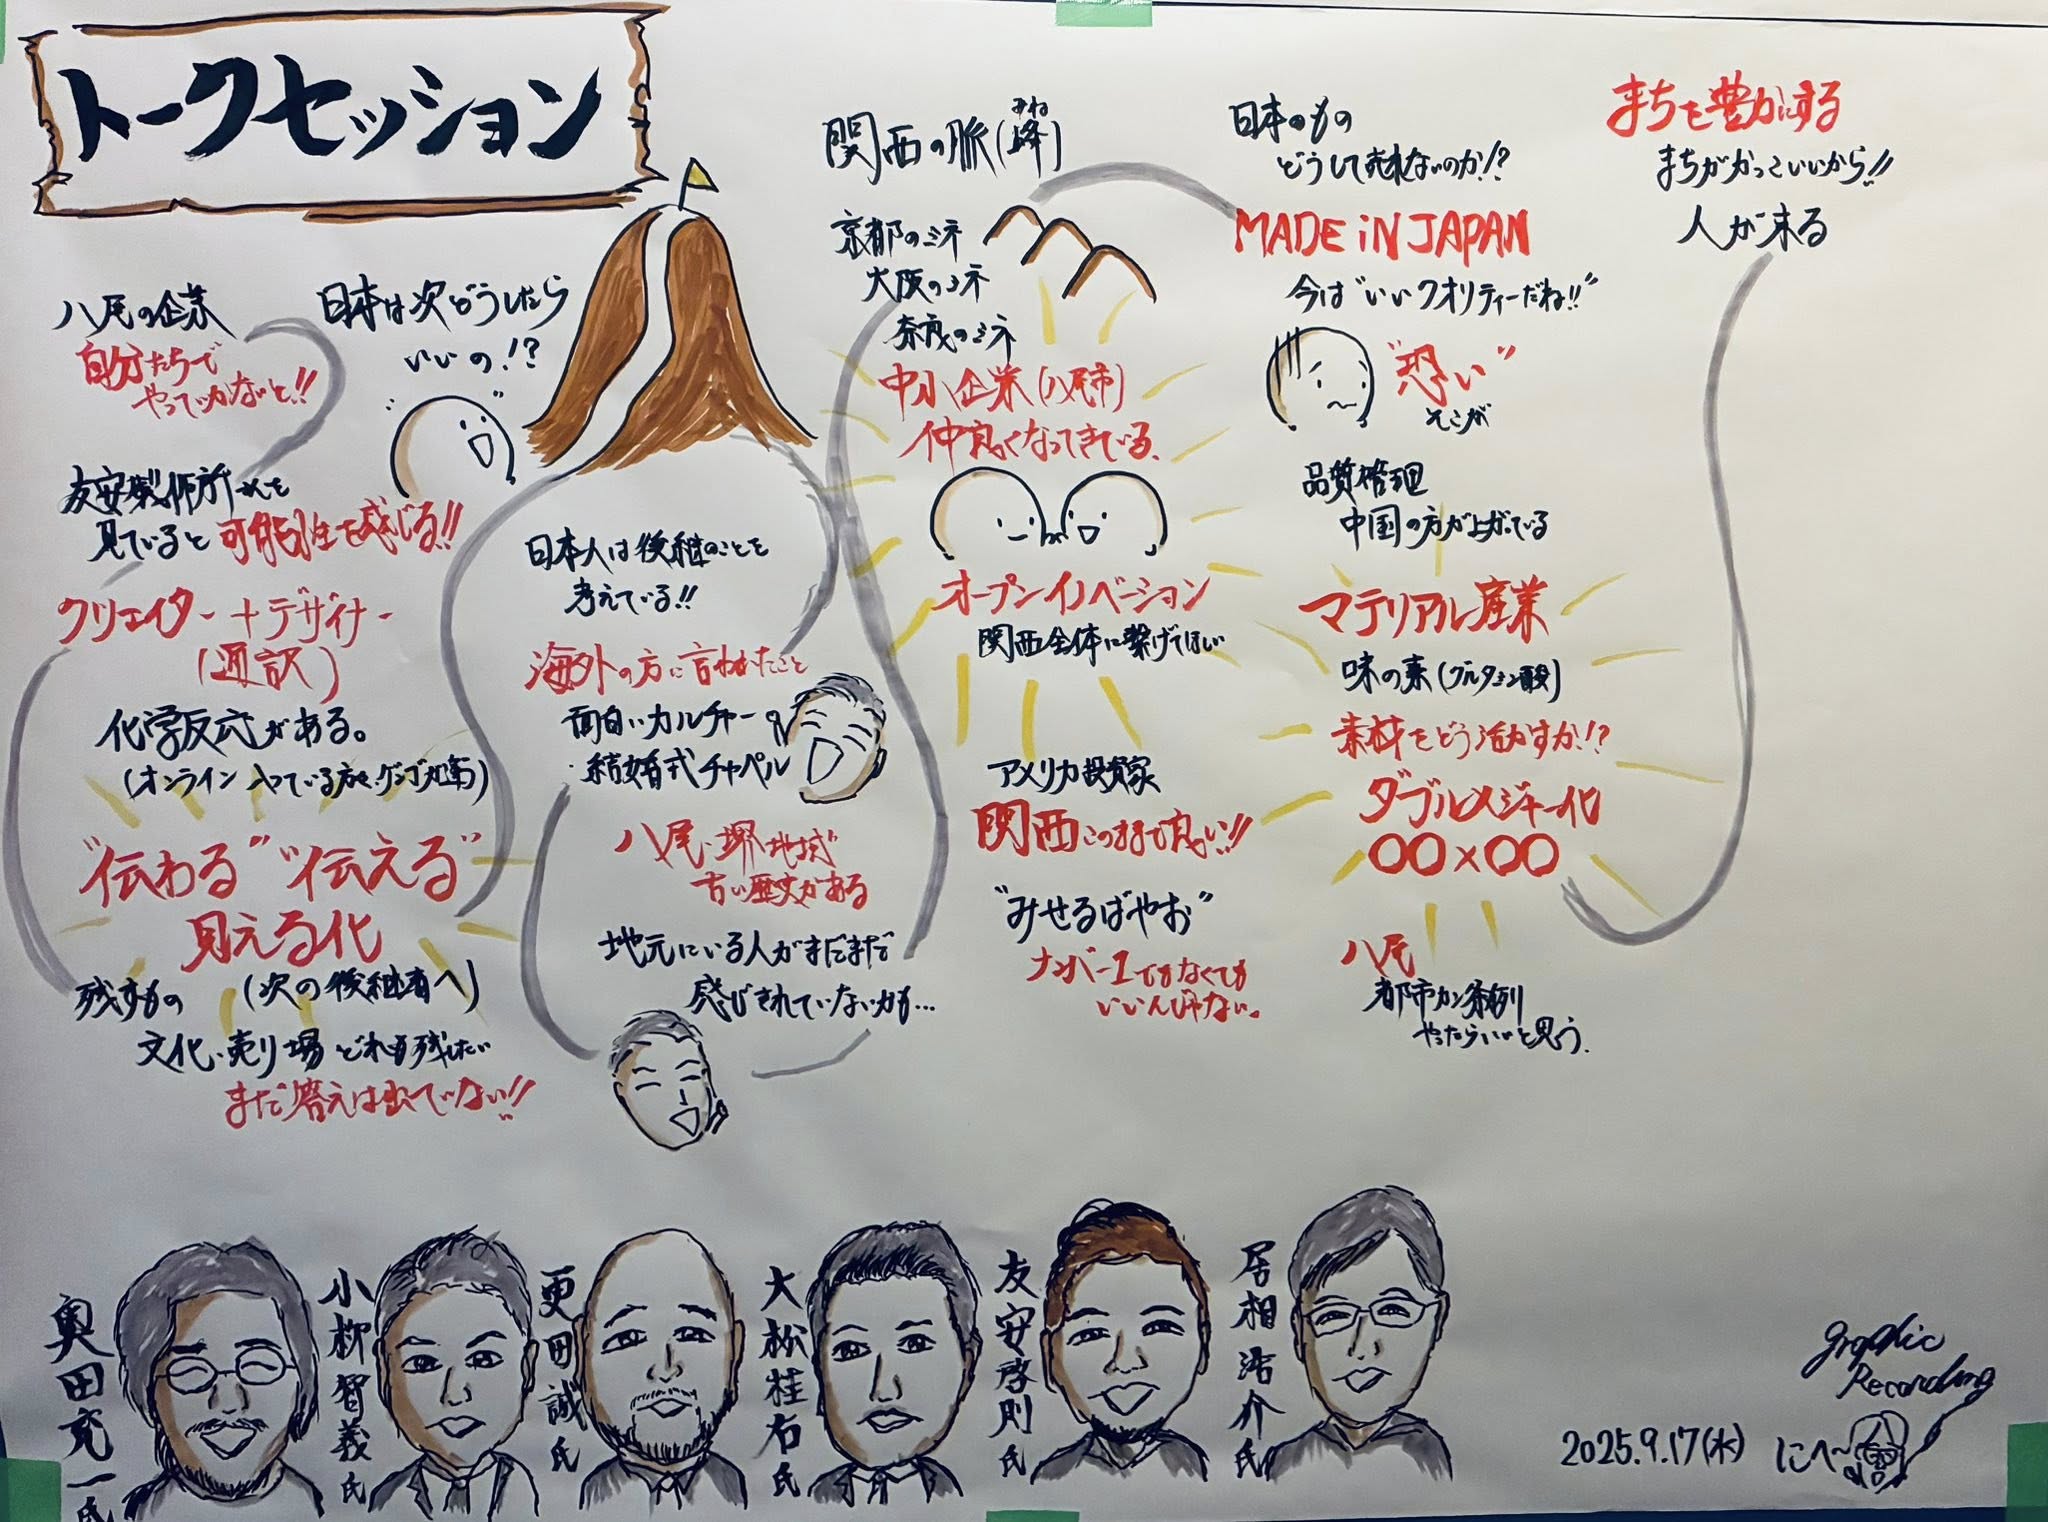 トークセッション
八尾の企業
自分たちで
やっていかないと!!
日本は次どうしたら
いいの!?
友安製作所さんを
見ていると可能性を感じる!!
クリエイター+デザイナー
(通訳)
化学反応がある。
(オンライン
"伝わる" "伝える"
見える化
残すもの
(次の後継者へ)
文化・売り場 どれを残したい
まだ答えは出ていない!!
日本人は後継のことを
考えている!!
海外の方に言われたこと
面白いカルチャー
・結婚式チャペル
八尾・堺"地域"
古い歴史がある
地元にいる人がまだまだ
感じきれていないかも…
関西の脈(峰)
みね
京都のミネ
大阪のミネ
奈良のミネ
中小企業(八尾市)
仲良くなってきている.
オープンイノベーション
関西全体に繋げてほしい
アメリカ投資家
関西このままで良い!!
"みせるばやお"
ナンバー1でなくても
いいんじゃない。
日本のもの
どうして売れないのか!?
MADE iN JAPAN
今は"いいクオリティーだね!!"
"想い"
そこが
品質管理
中国の方が上がっている
マテリアル産業
味の素(グルタミン酸)
素材をどう活かすか!?
ダブルメジャー化
○○×○○
八尾
都市カン条例
やったらいいと思う.
まちを豊かにする
まちがかっこいいから!!
人が来る
奥田充一氏
小柳智義氏
更田誠氏
大松桂右氏
友安啓則氏
居相浩介氏
Graphic
Recording
2025.9.17(水)
にへ〜